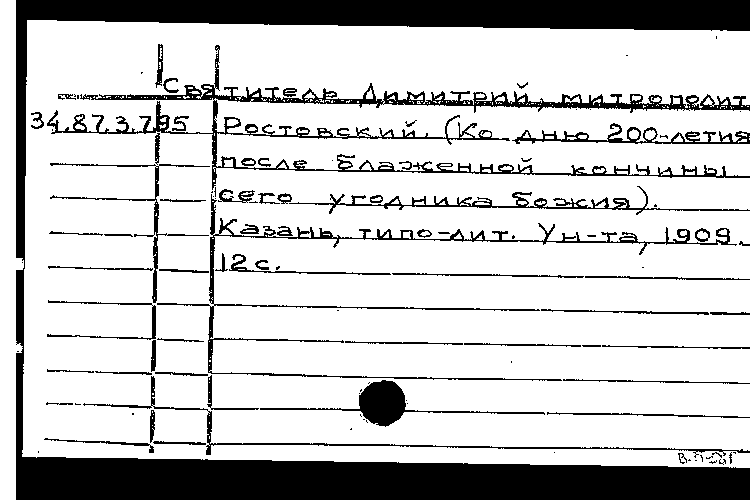 Святитель Димитрий, митрополит
34.87.3.795 Ростовский. (Ко дню 200-летия
после блаженной кончины
сего угодника божия).
Казань, типо-лит. Ун-та, 1909.
12 с.